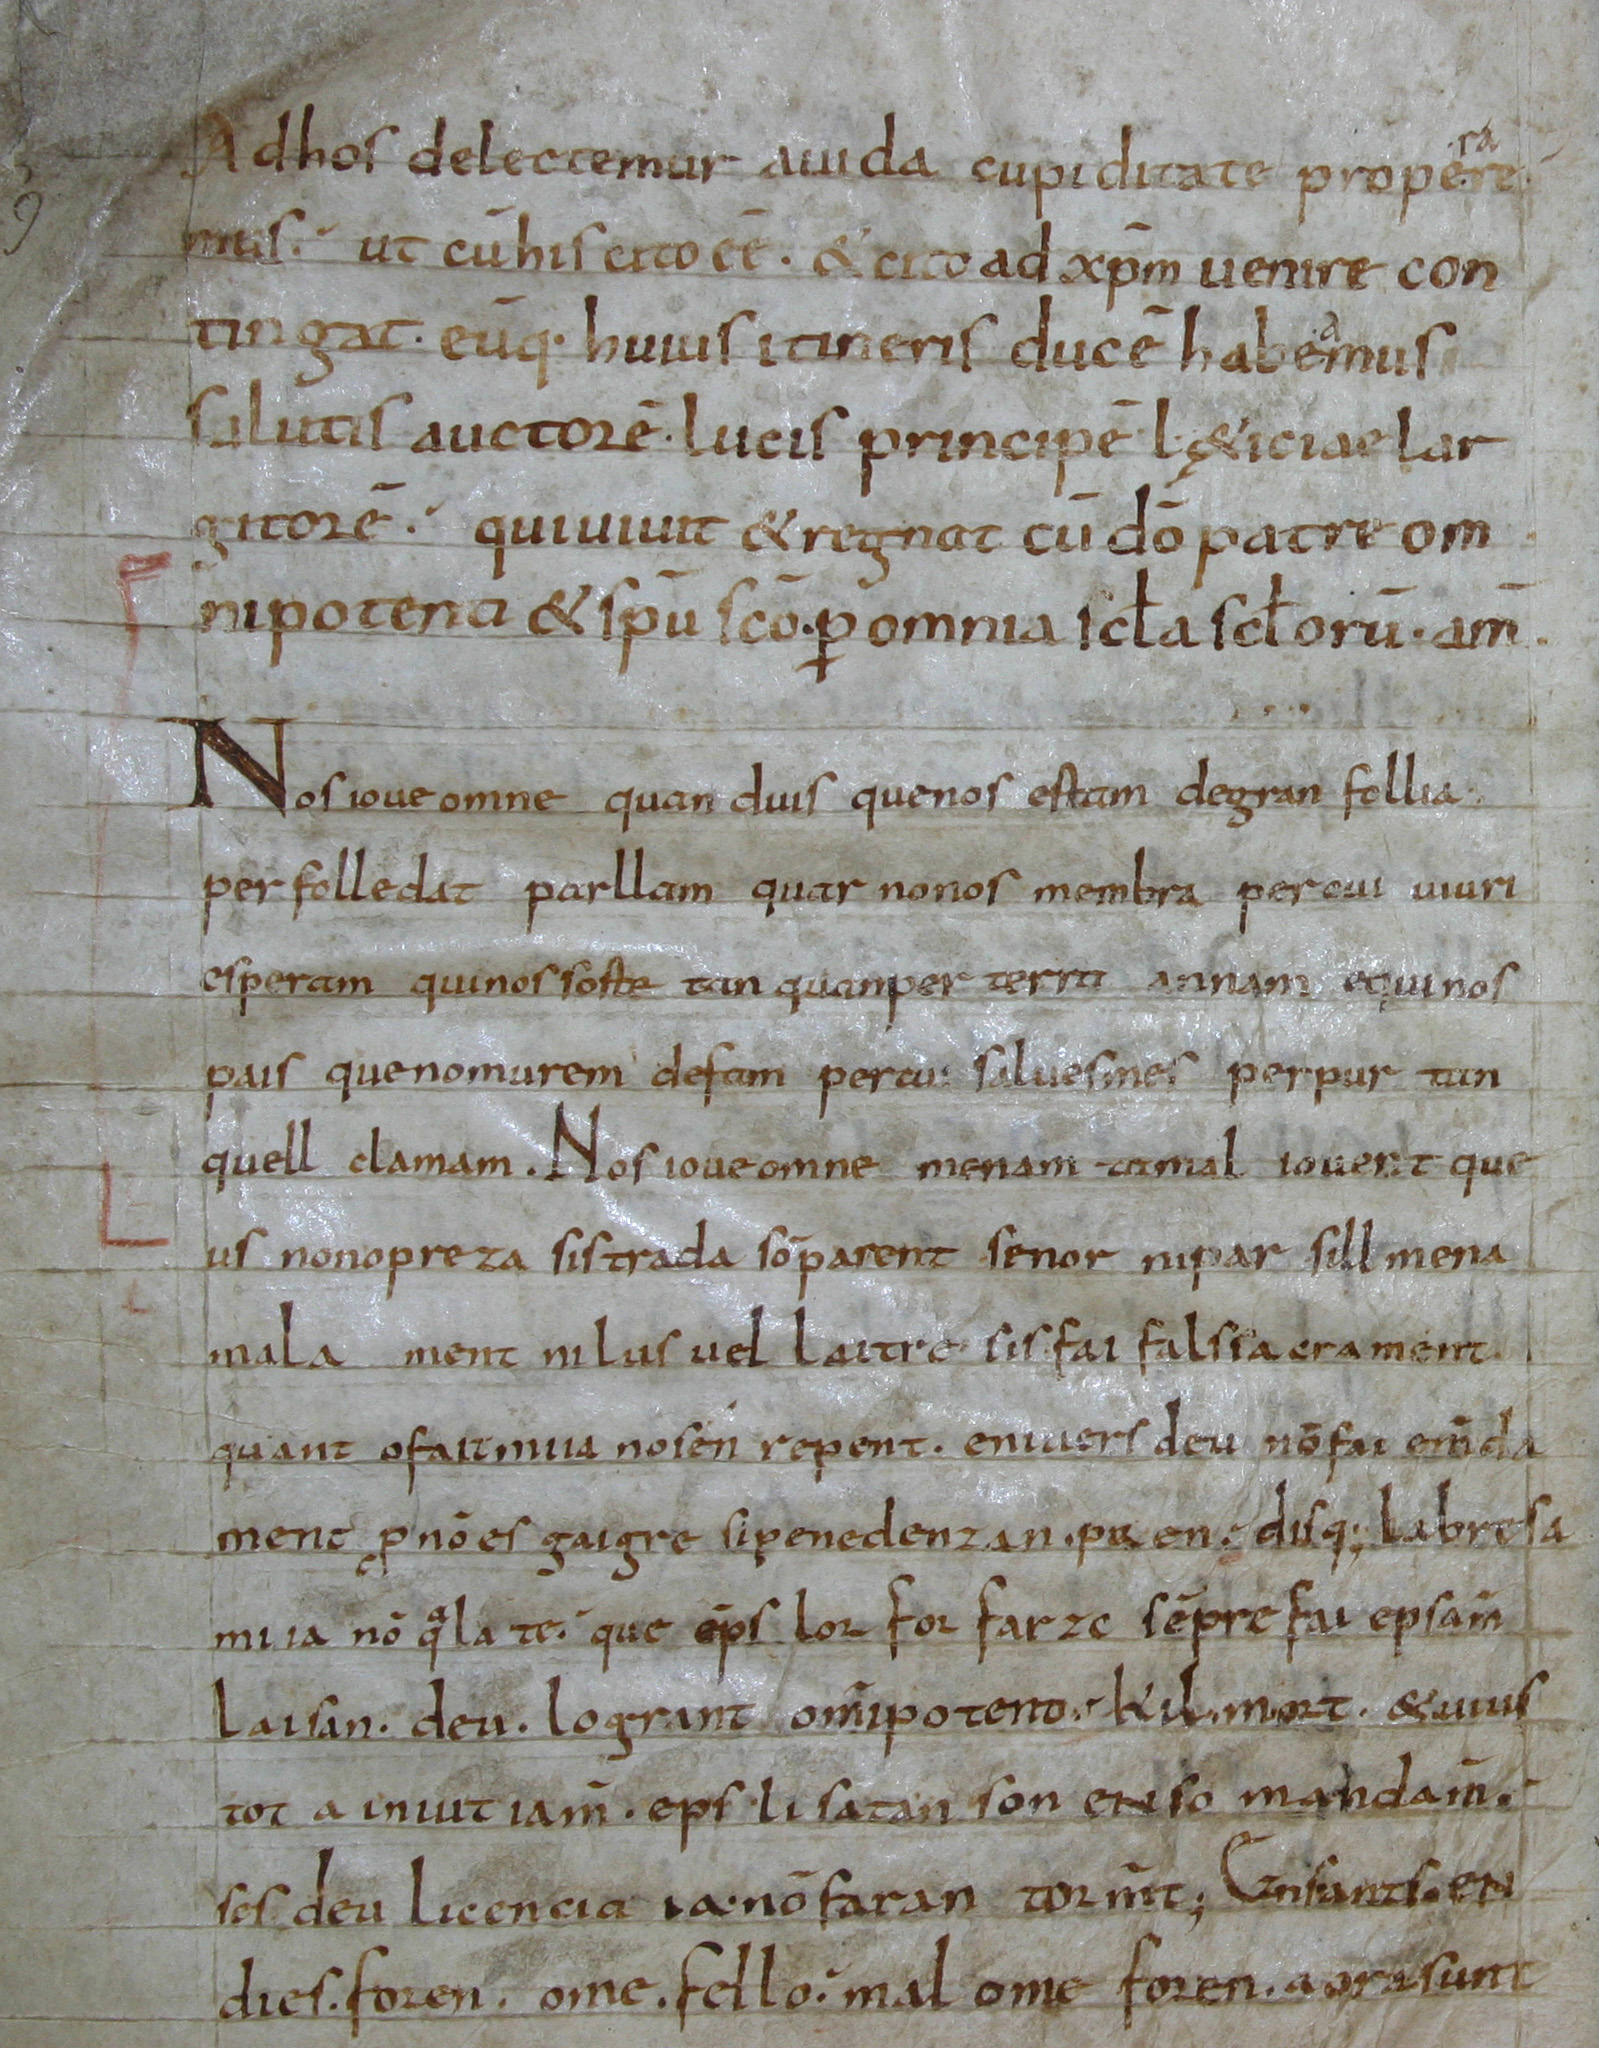 Adhos delectemur auida cupiditate propere ra
mus. ut cū his cito eē. & cito ad xp̄m uenire con
tingat. eūq. huius itineris ducē habeamus
salutis auctorē. lucis principē l&iciae lar
gitorē. qui uiuit & regnat cū dō patre om
nipotenti & sp̄u scō. ꝑ omnia scła scłorū. am̄.
Nos ioue omne quan duis que nos estam de gran follia
per folledat parllam quar no nos membra per cui uiuri
esperam qui nos soste tan quan per terra annam e qui nos
pais que no murem de fam per cui salues mes per pur tan
quell clamam. Nos ioue omne menam ta mal iouent que
us non o preza sis trada sō parent senor ni par sill mena
mala ment ni lus uel laitre sis fai fals sacrament
quant o fait mi ia no sen repent. eni uers deu nō fai em̄da
ment ꝓ nō es gaigre si penedenzan. pren. dis q; labresa
mi ia nō q̊la te. que eps lor forfarze sēpre fai epsam̄
laisan. deu. lo grant om̄ipotent. kil mort. & uius
tot a in iutiam̄. eps li satan son en so mandam̄.
ses deu licencia ia. nō faran torm̄t; Enfants. en
dies. foren. ome. fello. mal ome foren. a ora sunt